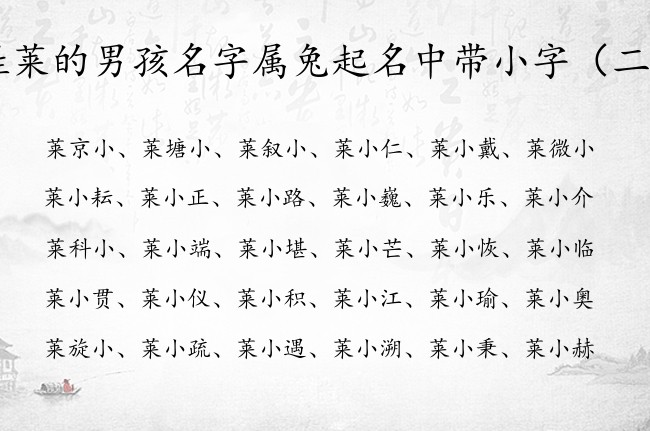 莱的男孩名字属兔起名中带小字（二
莱京小、莱塘小、莱叙小、莱小仁、莱小戴、莱微小
莱小耘、莱小正、莱小路、莱小巍、莱小乐、莱小介
莱科小、莱小端、莱小堪、莱小芒、莱小恢、莱小临
莱小贯、莱小仪、莱小积、莱小江、莱小瑜、莱小奥
莱旋小、莱小疏、莱小遇、莱小溯、莱小秉、莱小赫